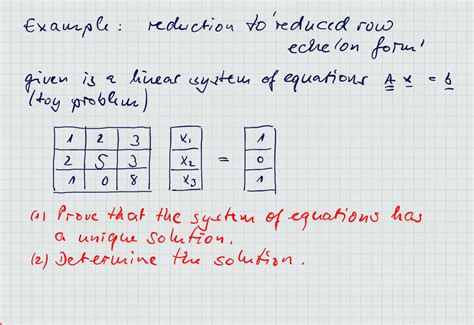 Example: reduction to 'reduced row
echelon form'
given is a linear system of equations A x = b
(toy problem)
1 2 3 x₁ 1
2 5 3 x₂ = 0
1 0 8 x₃ 1
(1) Prove that the system of equations has
a unique solution.
(2) Determine the solution.